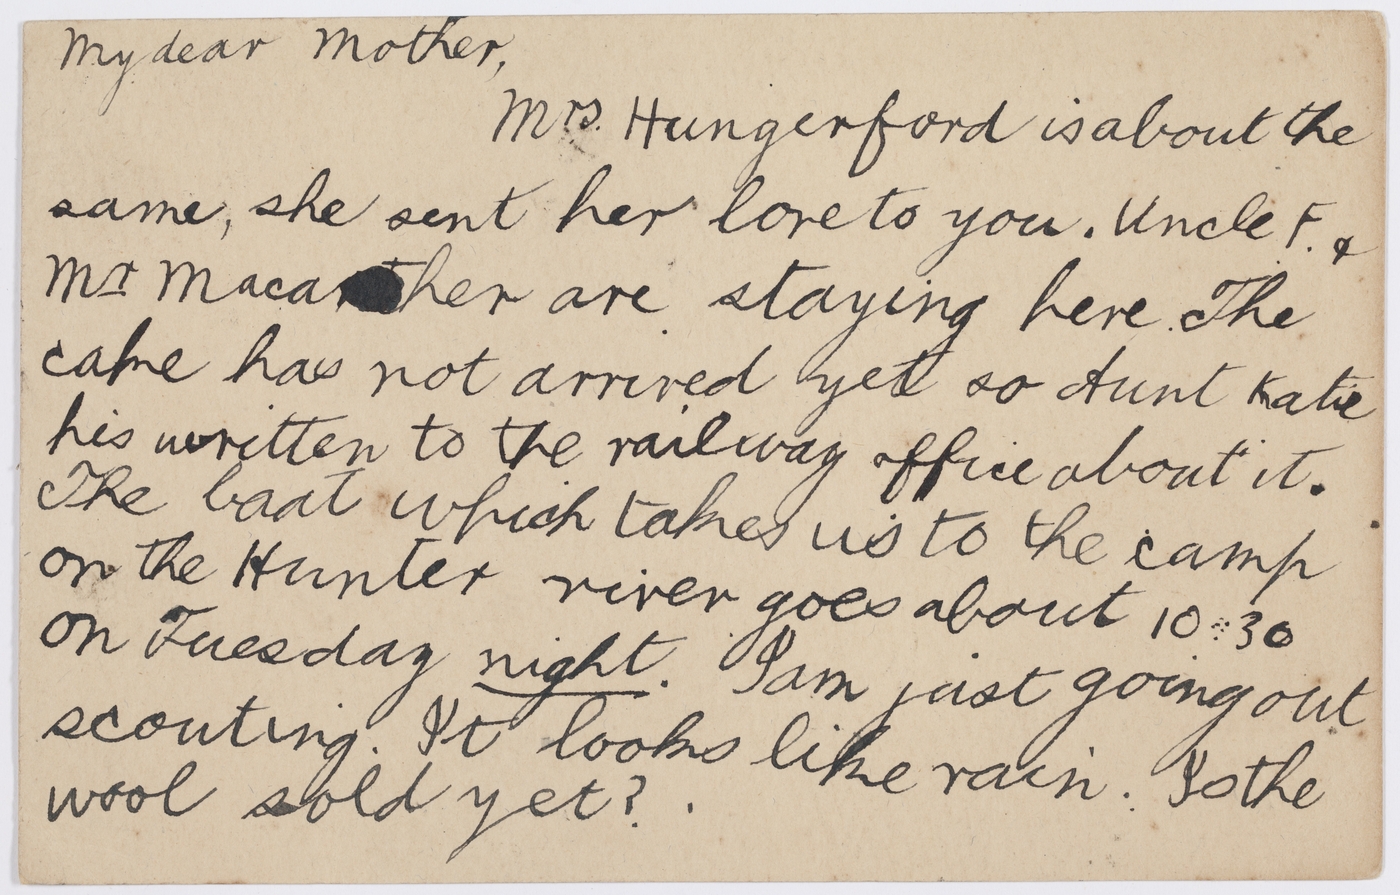 My dear Mother,
Mrs. Hungerford is about the
same, she sent her love to you. Uncle F. &
Mr Macarther are staying here. The
cake has not arrived yet so Aunt Katie
his written to the railway office about it.
The boat which takes us to the camp
on the Hunter river goes about 10:30
on Tuesday night. I am just going out
scouting. It looks like rain. Is the
wool sold yet?.